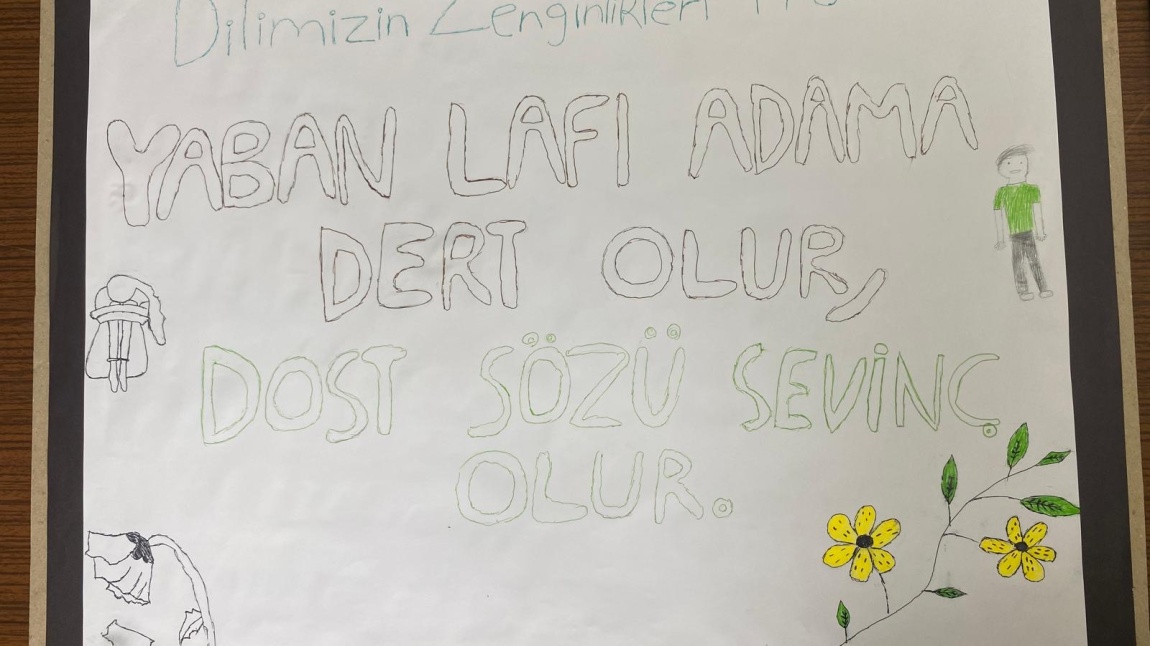 Dilimizin Zenginlikleri
YABAN LAFI ADAMA
DERT OLUR,
DOST SÖZÜ SEVİNÇ
OLUR.